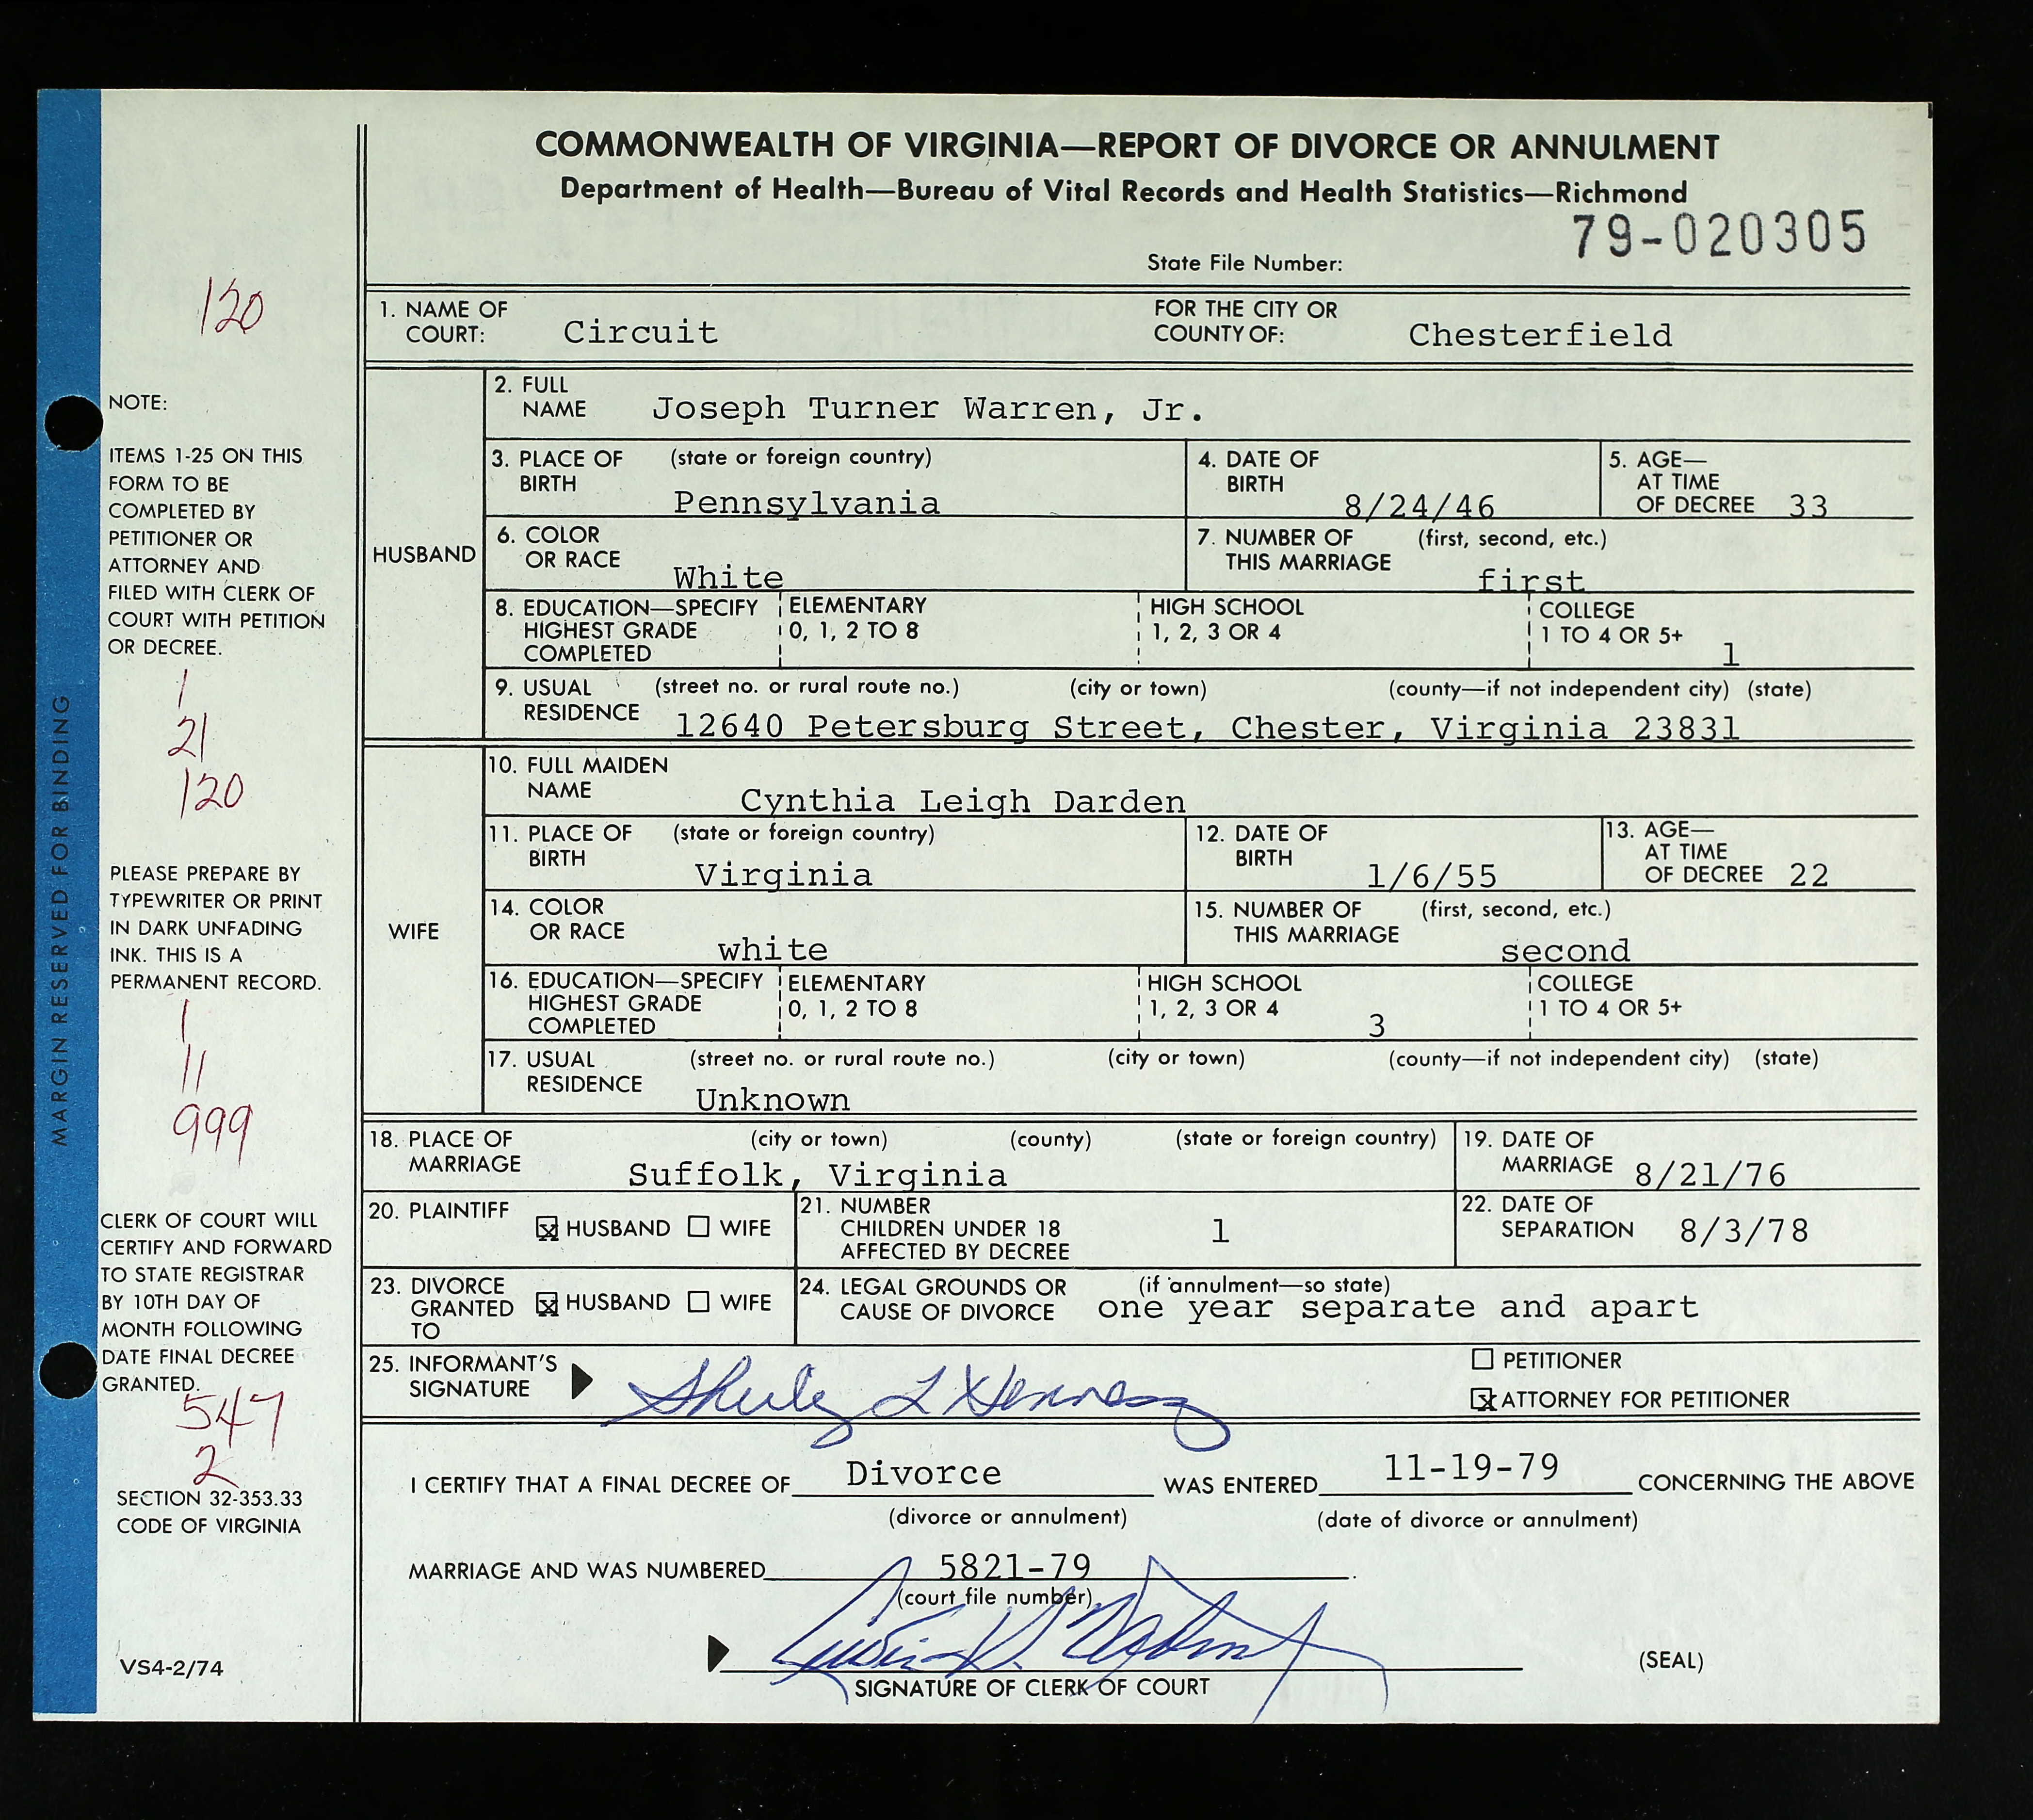 COMMONWEALTH OF VIRGINIA—REPORT OF DIVORCE OR ANNULMENT
Department of Health—Bureau of Vital Records and Health Statistics—Richmond
79-020305
State File Number:
120
1. NAME OF COURT: Circuit
FOR THE CITY OR COUNTY OF: Chesterfield
HUSBAND
2. FULL NAME Joseph Turner Warren, Jr.
3. PLACE OF BIRTH (state or foreign country) Pennsylvania
4. DATE OF BIRTH 8/24/46
5. AGE—AT TIME OF DECREE 33
6. COLOR OR RACE White
7. NUMBER OF THIS MARRIAGE (first, second, etc.) first
8. EDUCATION—SPECIFY HIGHEST GRADE COMPLETED
ELEMENTARY 0, 1, 2 TO 8
HIGH SCHOOL 1, 2, 3 OR 4
COLLEGE 1 TO 4 OR 5+ 1
9. USUAL RESIDENCE (street no. or rural route no.) (city or town) (county—if not independent city) (state)
12640 Petersburg Street, Chester, Virginia 23831
WIFE
10. FULL MAIDEN NAME Cynthia Leigh Darden
11. PLACE OF BIRTH (state or foreign country) Virginia
12. DATE OF BIRTH 1/6/55
13. AGE—AT TIME OF DECREE 22
14. COLOR OR RACE white
15. NUMBER OF THIS MARRIAGE (first, second, etc.) second
16. EDUCATION—SPECIFY HIGHEST GRADE COMPLETED
ELEMENTARY 0, 1, 2 TO 8
HIGH SCHOOL 1, 2, 3 OR 4 3
COLLEGE 1 TO 4 OR 5+
17. USUAL RESIDENCE (street no. or rural route no.) (city or town) (county—if not independent city) (state)
Unknown
18. PLACE OF MARRIAGE (city or town) (county) (state or foreign country)
Suffolk, Virginia
19. DATE OF MARRIAGE 8/21/76
20. PLAINTIFF x HUSBAND WIFE
21. NUMBER CHILDREN UNDER 18 AFFECTED BY DECREE 1
22. DATE OF SEPARATION 8/3/78
23. DIVORCE GRANTED TO x HUSBAND WIFE
24. LEGAL GROUNDS OR CAUSE OF DIVORCE (if annulment—so state)
one year separate and apart
25. INFORMANT'S SIGNATURE
PETITIONER
x ATTORNEY FOR PETITIONER
I CERTIFY THAT A FINAL DECREE OF Divorce WAS ENTERED 11-19-79 CONCERNING THE ABOVE
(divorce or annulment) (date of divorce or annulment)
MARRIAGE AND WAS NUMBERED 5821-79.
(court file number)
SIGNATURE OF CLERK OF COURT
(SEAL)
MARGIN RESERVED FOR BINDING
NOTE:
ITEMS 1-25 ON THIS
FORM TO BE
COMPLETED BY
PETITIONER OR
ATTORNEY AND
FILED WITH CLERK OF
COURT WITH PETITION
OR DECREE.
1
21
120
PLEASE PREPARE BY
TYPEWRITER OR PRINT
IN DARK UNFADING
INK. THIS IS A
PERMANENT RECORD.
1
11
999
CLERK OF COURT WILL
CERTIFY AND FORWARD
TO STATE REGISTRAR
BY 10TH DAY OF
MONTH FOLLOWING
DATE FINAL DECREE
GRANTED.
547
2
SECTION 32-353.33
CODE OF VIRGINIA
VS4-2/74